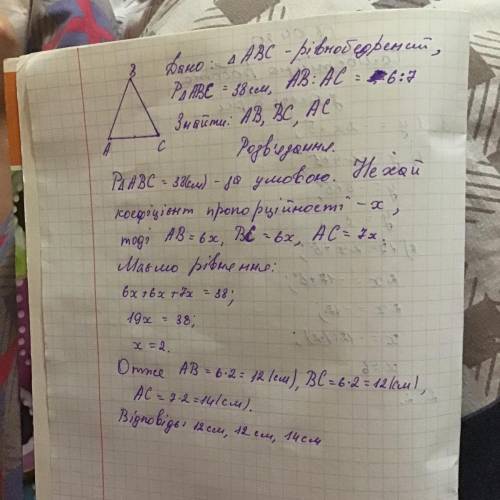 B
A
C
Дано: △ABC - рівнобедрений,
P△ABC = 38 см, AB:AC = 6:7
Знайти: AB, BC, AC
Розв'язання.
P△ABC = 38(см) - за умовою. Нехай
коефіцієнт пропорційності - x,
тоді AB = 6x, BC = 6x, AC = 7x.
Маємо рівняння:
6x+6x+7x = 38;
19x = 38;
x = 2.
Отже AB = 6·2 = 12(см), BC = 6·2 = 12(см),
AC = 7·2 = 14(см).
Відповідь: 12см, 12 см, 14см